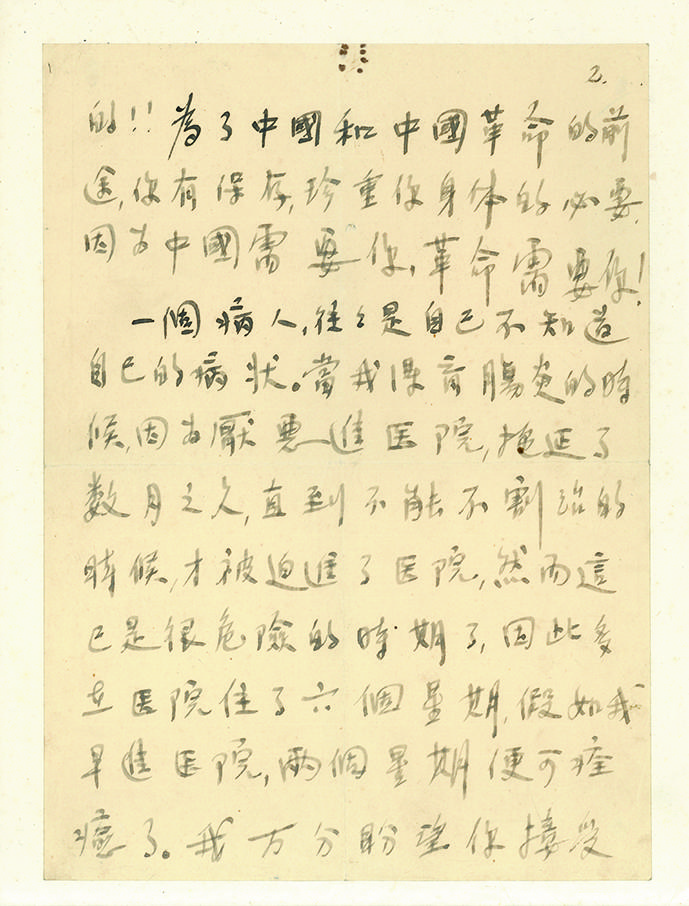 2.
的!!為了中國和中國革命的前
途,你有保存,珍重你身体的必要.
因为中國需要你,革命需要你!
一個病人,往々是自己不知道
自己的病状。當我患盲腸炎的時
候,因为厭悪進医院,拖延了
数月之久,直到不能不割治的
時候,才被迫進了医院,然而這
已是很危險的時期了,因此多
在医院住了六個星期,假如我
早進医院,兩個星期便可痊
癒了。我万分盼望你接受